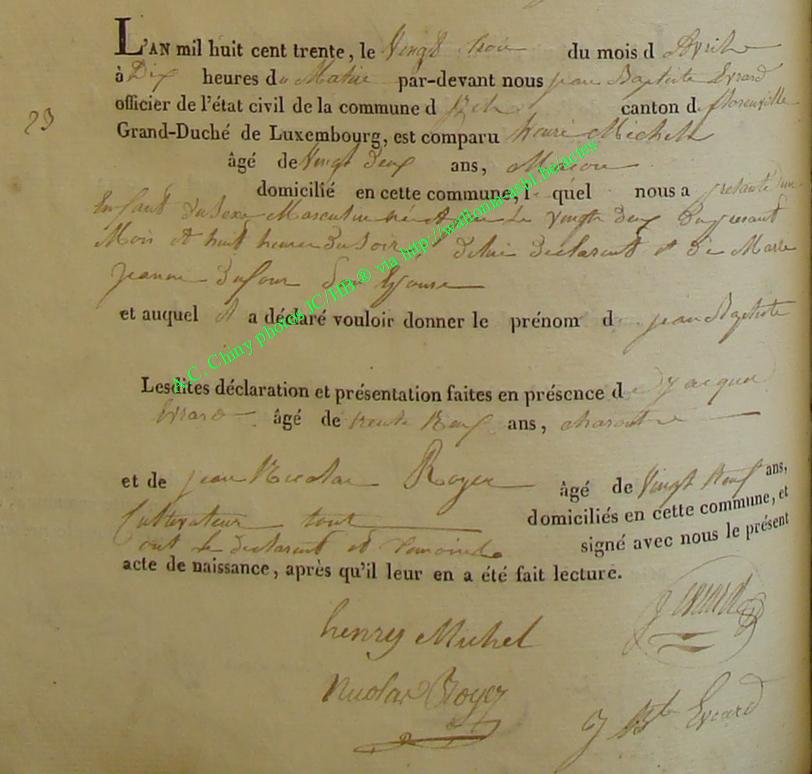 L'AN mil huit cent trente, le Vingt trois du mois d'Avril
à Dix heures du Matin par-devant nous jean Baptiste Evrard
officier de l'état civil de la commune d canton de florenville
23
Grand-Duché de Luxembourg, est comparu henri Michel
âgé de Vingt deux ans, Macon
domicilié en cette commune, l quel nous a présenté d'un
Enfant du Sexe Masculin né le vingt deux du présent
Mois et huit heures du soir de lui déclarant et de Marie
jeanne Dufour Son Epouse
et auquel il a déclaré vouloir donner le prénom d jean Baptiste
Lesdites déclaration et présentation faites en présence de jacque
Evrard âgé de trente Neuf ans,
et de jean Nicolas Royer âgé de Vingt Neuf ans,
Cultivateur tout domiciliés en cette commune, et
ont le declarant et temoins signé avec nous le présent
acte de naissance, après qu'il leur en a été fait lecture.
henry Michel
J Evrard
Nicolas Royer
J Bte Evrard
A.C. Chiny photos JC/HB ® via http://walloniaasbl.be/actes